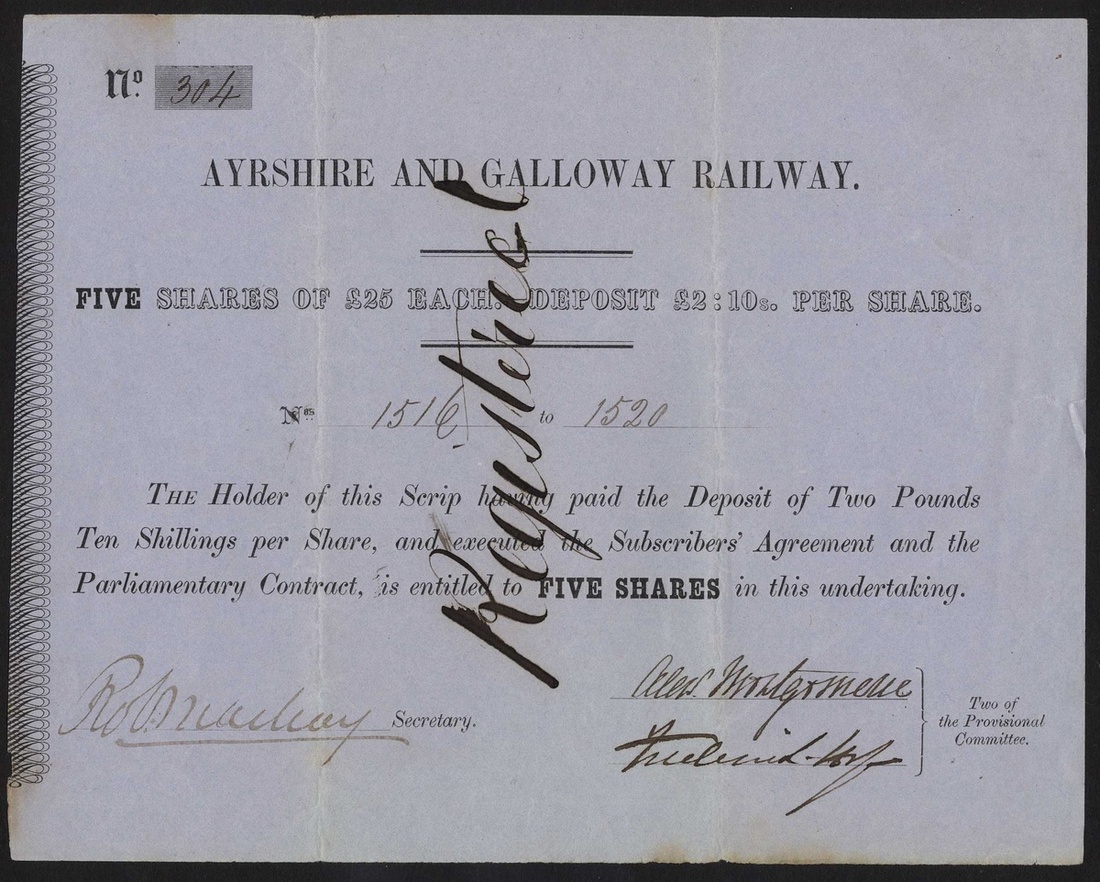 No. 304
AYRSHIRE AND GALLOWAY RAILWAY.
FIVE SHARES OF £25 EACH. DEPOSIT £2:10s. PER SHARE.
Nos 1516 to 1520
THE Holder of this Scrip having paid the Deposit of Two Pounds
Ten Shillings per Share, and executed the Subscribers' Agreement and the
Parliamentary Contract, is entitled to FIVE SHARES in this undertaking.
Registered
Secretary.
Alexr. Montgomerie
Two of
the Provisional
Committee.